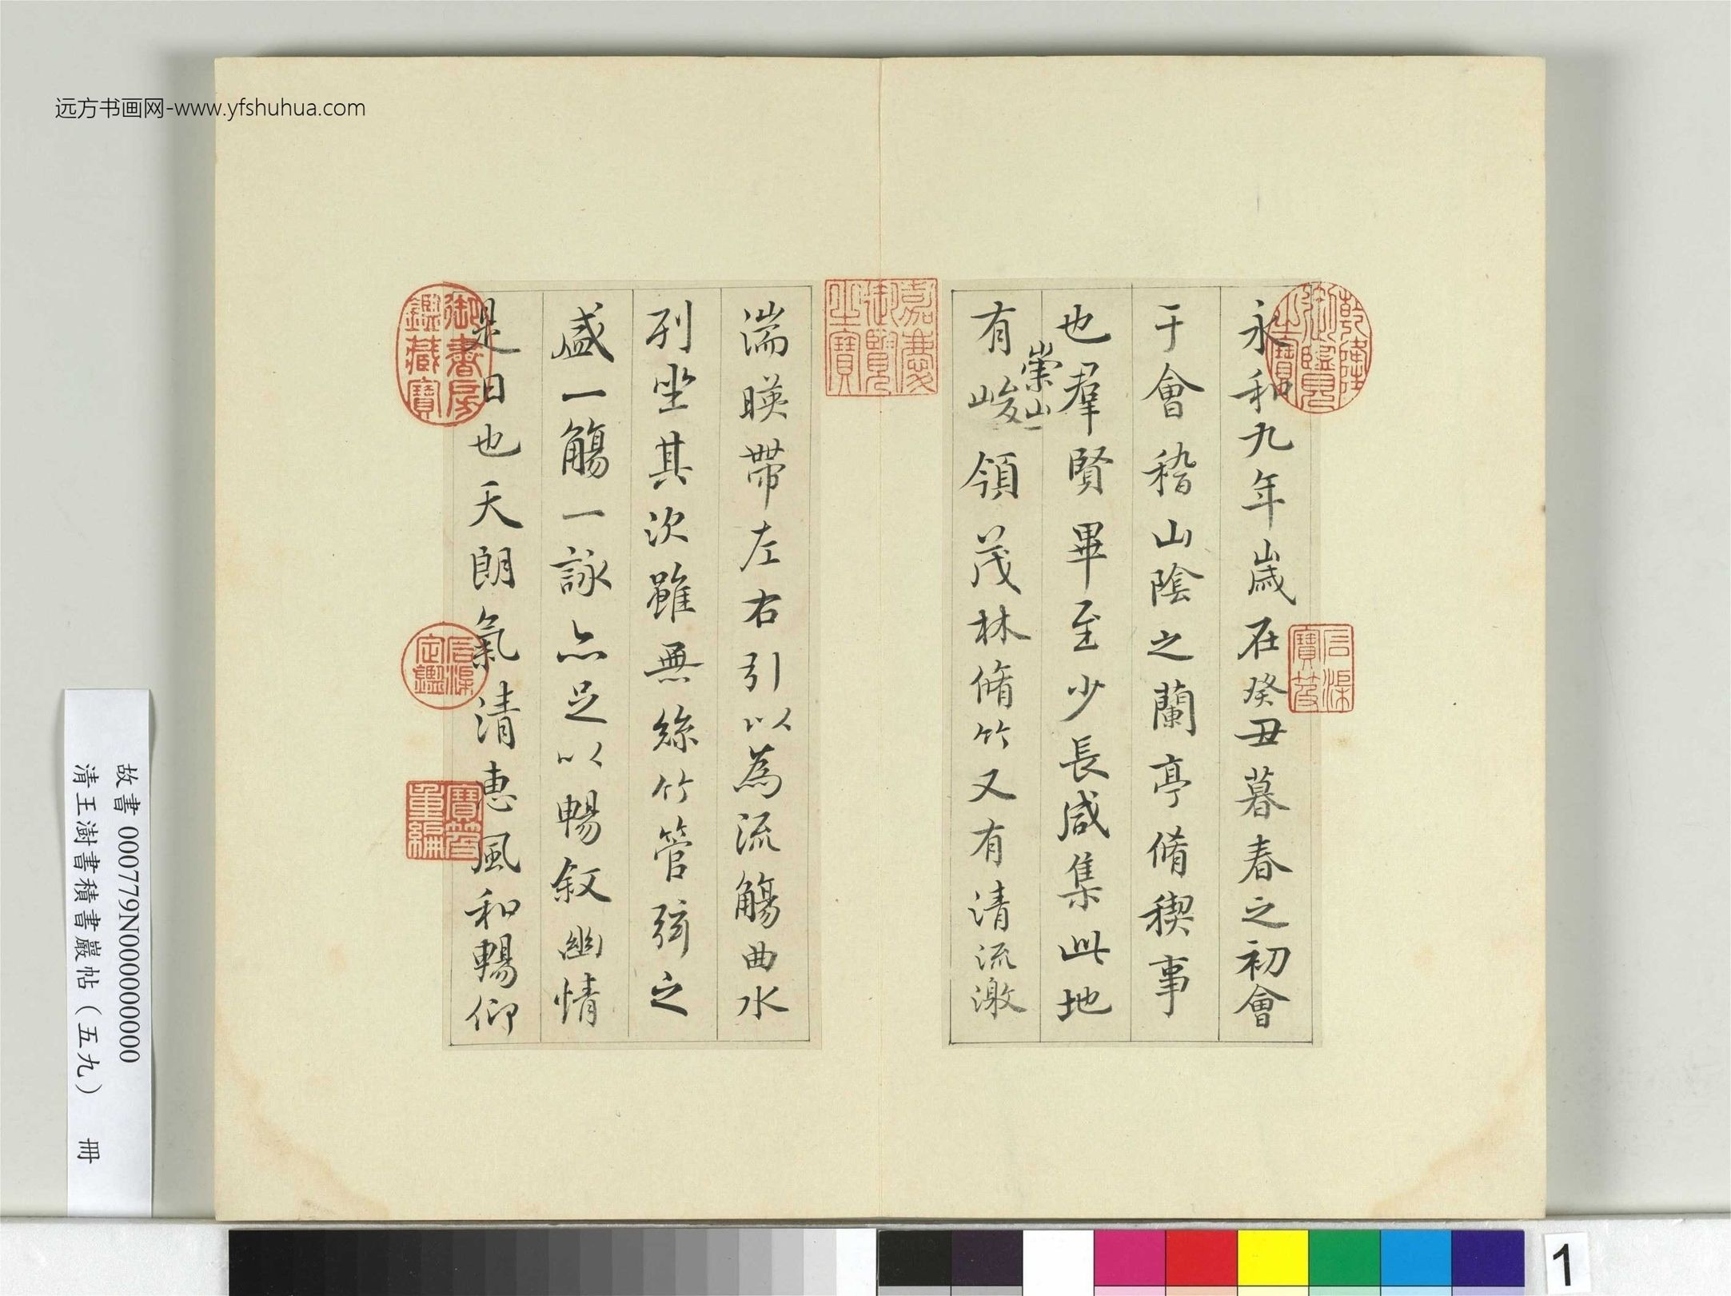 远方书画网-www.yfshuhua.com
永和九年歲在癸丑暮春之初會
于會稽山陰之蘭亭脩稧事
也羣賢畢至少長咸集此地
有崇山峻領茂林脩竹又有清流激
湍暎帶左右引以為流觴曲水
列坐其次雖無絲竹管弦之
盛一觴一詠亦足以暢敘幽情
是日也天朗氣清惠風和暢仰
乾隆御覽之寶
石渠寶笈
嘉慶御覽之寶
御書房鑑藏寶
石渠定鑑
寶笈重編
故書 000779N000000000
清王澍書積書巖帖（五九） 冊
1